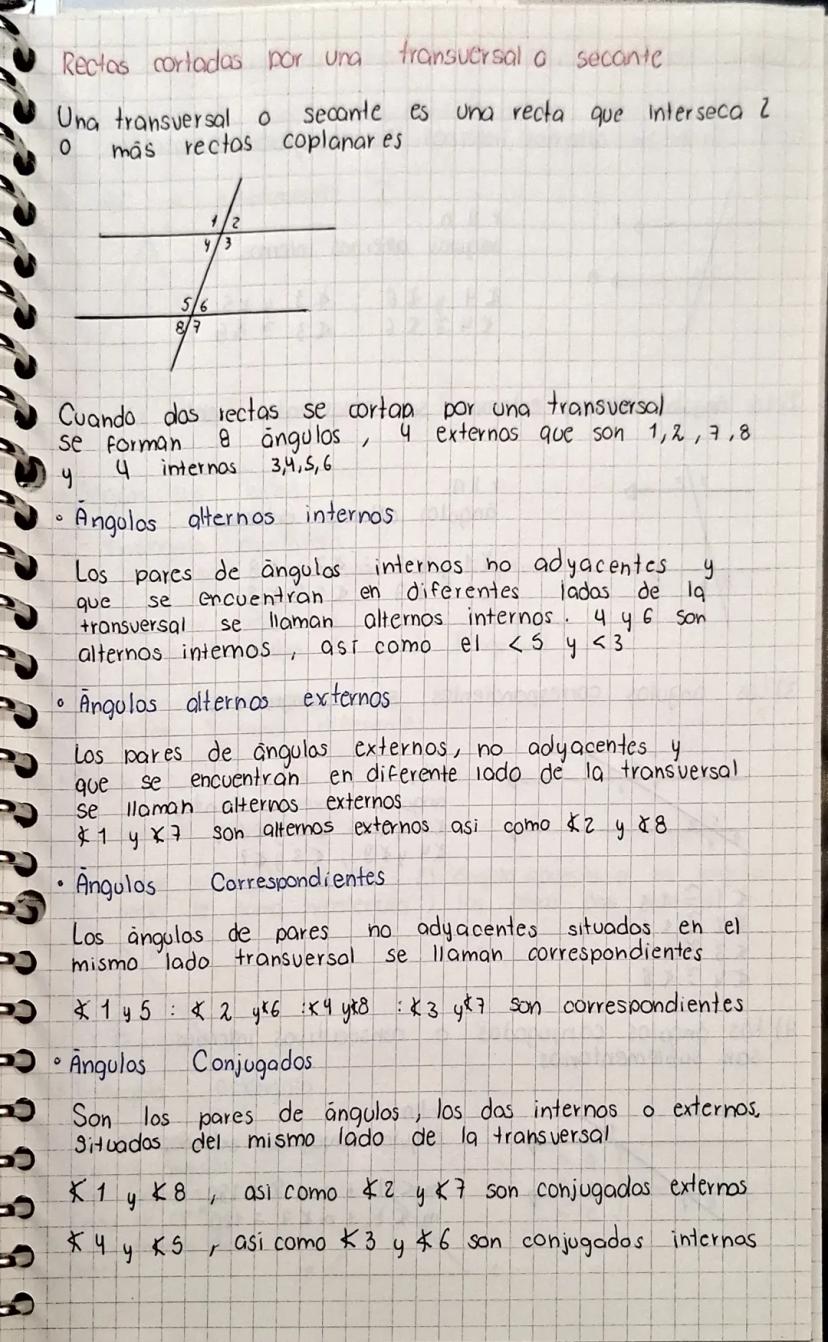 Rectas cortadas por una transversal o secante
Una transversal o secante es una recta que interseca 2
o más rectas coplanares
1 2
4 3
5 6
8 7
Cuando dos rectas se cortan por una transversal
se forman 8 ángulos, 4 externos que son 1, 2, 7, 8
y 4 internos 3,4,5,6
• Ángulos alternos internos
Los pares de ángulos internos no adyacentes y
que se encuentran en diferentes lados de la
transversal se llaman alternos internos. 4 y 6 son
alternos internos, así como el <5 y <3
• Ángulos alternos externos
Los pares de ángulos externos, no adyacentes y
que se encuentran en diferente lado de la transversal
se llaman alternos externos
∡1 y ∡7 son alternos externos asi como ∡2 y ∡8
• Ángulos Correspondientes
Los ángulos de pares no adyacentes situados en el
mismo lado transversal se llaman correspondientes
∡1 y 5 : ∡2 y ∡6 : ∡4 y ∡8 : ∡3 y ∡7 son correspondientes
• Ángulos Conjugados
Son los pares de ángulos, los dos internos o externos,
situados del mismo lado de la transversal
∡1 y ∡8, asi como ∡2 y ∡7 son conjugados externos
∡4 y ∡5, asi como ∡3 y ∡6 son conjugados internos